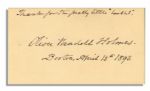 Thanks for the pretty little
Oliver Wendell Holmes.
Boston, April 13th 1892